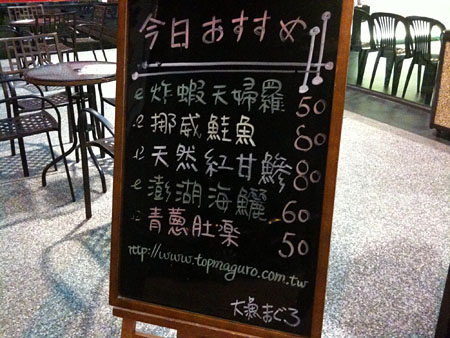 今日おすすめ
炸蝦天婦羅 50
挪威鮭魚 80
天然紅甘鰺 80
澎湖海鱺 60
青蔥肚 50
http://www.topmaguro.com.tw
大魚まぐろ